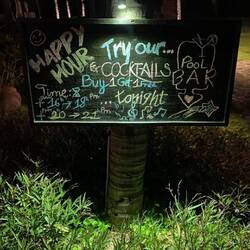 HAPPY
HOUR
Try our...
& COCKTAILS
Buy 1 Get 1 Free
... tonight
Pool
BAR
Time:
16°° → 18°°
20°° → 21°°